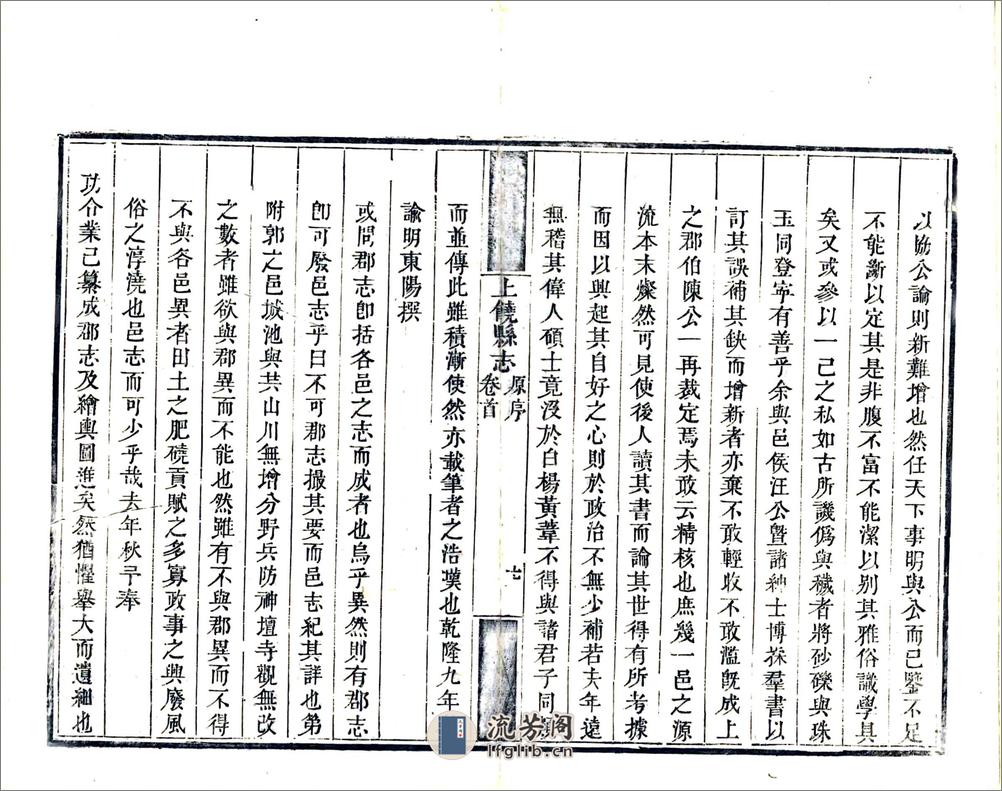 以協公論則新難增也然任天下事明與公而已鑒不足
不能斷以定其是非腹不富不能潔以別其雅俗識學具
矣又或參以一己之私如古所譏僞與穢者將砂礫與珠
玉同登寜有善乎余與邑侯汪公曁諸紳士博採羣書以
訂其誤補其缺而增新者亦棄不敢輕收不敢濫旣成上
之郡伯陳公一再裁定焉未敢云精核也庶幾一邑之源
流本末燦然可見使後人讀其書而論其世得有所考據
而因以興起其自好之心則於政治不無少補若夫年遠
無稽其偉人碩士竟沒於白楊黃葦不得與諸君子同
上饒縣志
原序
卷首
七
而並傳此雖積漸使然亦載筆者之浩嘆也乾隆九年
諭明東陽撰
或問郡志卽括各邑之志而成者也烏乎異然則有郡志
卽可廢邑志乎曰不可郡志撮其要而邑志紀其詳也第
附郭之邑城池與共山川無增分野兵防神壇寺觀無改
之數者雖欲與郡異而不能也然雖有不與郡異而不得
不與各邑異者田土之肥磽貢賦之多寡政事之興廢風
俗之淳澆也邑志而可少乎哉去年秋予奉
功令業已纂成郡志及繪輿圖進矣然猶懼舉大而遺細也
流芳阁
lfglib.cn